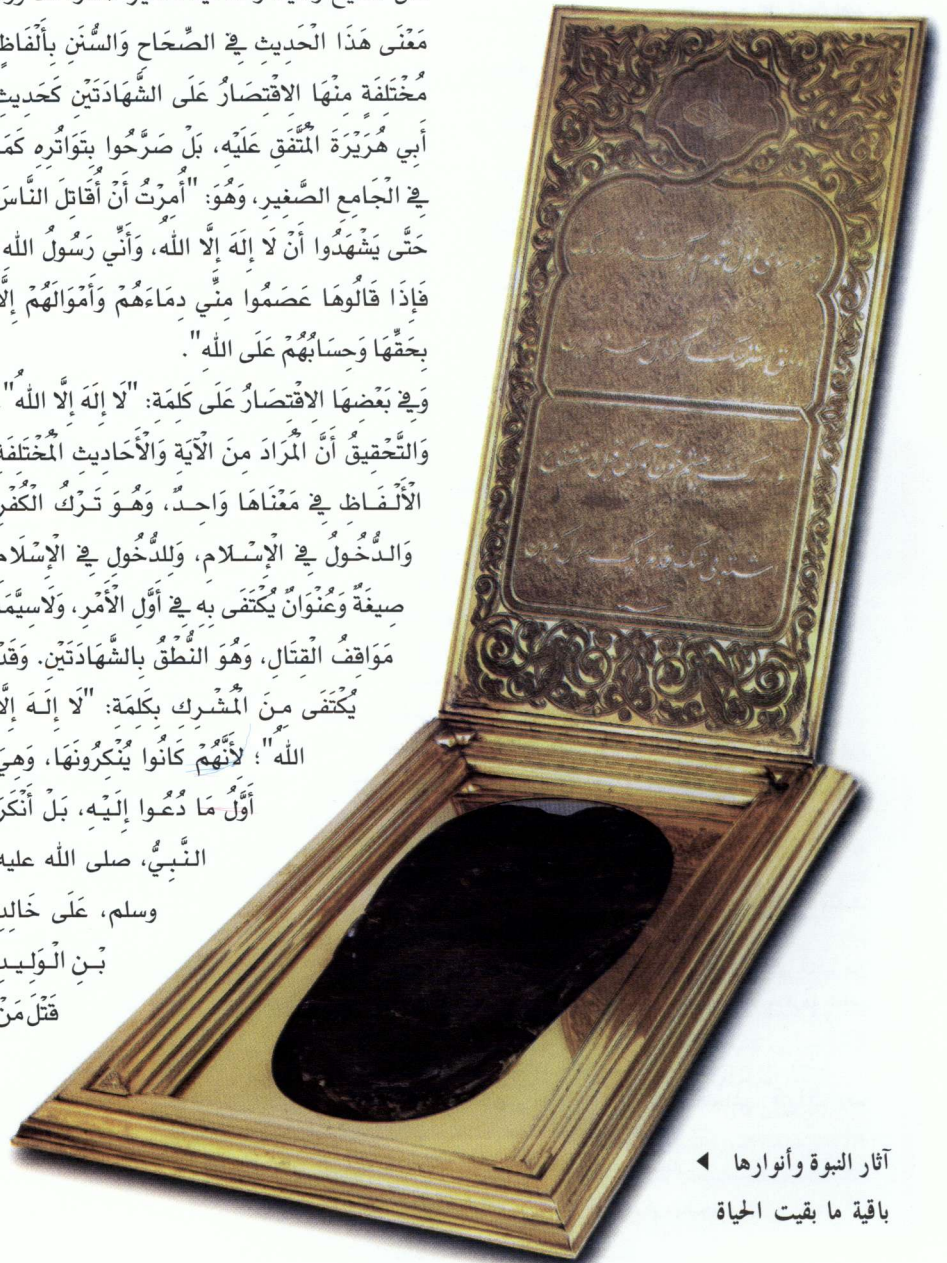 مَعْنَى هَذَا الْحَدِيثِ فِي الصِّحَاحِ وَالسُّنَنِ بِأَلْفَاظٍ
مُخْتَلِفَةٍ مِنْهَا الِاقْتِصَارُ عَلَى الشَّهَادَتَيْنِ كَحَدِيثِ
أَبِي هُرَيْرَةَ الْمُتَّفَقِ عَلَيْهِ، بَلْ صَرَّحُوا بِتَوَاتُرِهِ كَمَا
فِي الْجَامِعِ الصَّغِيرِ، وَهُوَ: "أُمِرْتُ أَنْ أُقَاتِلَ النَّاسَ
حَتَّى يَشْهَدُوا أَنْ لَا إِلَهَ إِلَّا اللهُ، وَأَنِّي رَسُولُ اللهِ
فَإِذَا قَالُوهَا عَصَمُوا مِنِّي دِمَاءَهُمْ وَأَمْوَالَهُمْ إِلَّا
بِحَقِّهَا وَحِسَابُهُمْ عَلَى اللهِ".
وَفِي بَعْضِهَا الِاقْتِصَارُ عَلَى كَلِمَةِ: "لَا إِلَهَ إِلَّا اللهُ"
وَالتَّحْقِيقُ أَنَّ الْمُرَادَ مِنَ الْآيَةِ وَالْأَحَادِيثِ الْمُخْتَلِفَةِ
الْأَلْفَاظِ فِي مَعْنَاهَا وَاحِدٌ، وَهُوَ تَرْكُ الْكُفْرِ
وَالدُّخُولُ فِي الْإِسْلَامِ، وَلِلدُّخُولِ فِي الْإِسْلَامِ
صِيغَةٌ وَعُنْوَانٌ يُكْتَفَى بِهِ فِي أَوَّلِ الْأَمْرِ، وَلَاسِيَّمَا
مَوَاقِفُ الْقِتَالِ، وَهُوَ النُّطْقُ بِالشَّهَادَتَيْنِ. وَقَدْ
يُكْتَفَى مِنَ الْمُشْرِكِ بِكَلِمَةِ: "لَا إِلَهَ إِلَّا
اللهُ"؛ لِأَنَّهُمْ كَانُوا يُنْكِرُونَهَا، وَهِيَ
أَوَّلُ مَا دُعُوا إِلَيْهِ، بَلْ أَنْكَرَ
النَّبِيُّ، صلى الله عليه
وسلم، عَلَى خَالِدِ
بْنِ الْوَلِيدِ
قَتْلَ مَنْ
آثار النبوة وأنوارها
باقية ما بقيت الحياة